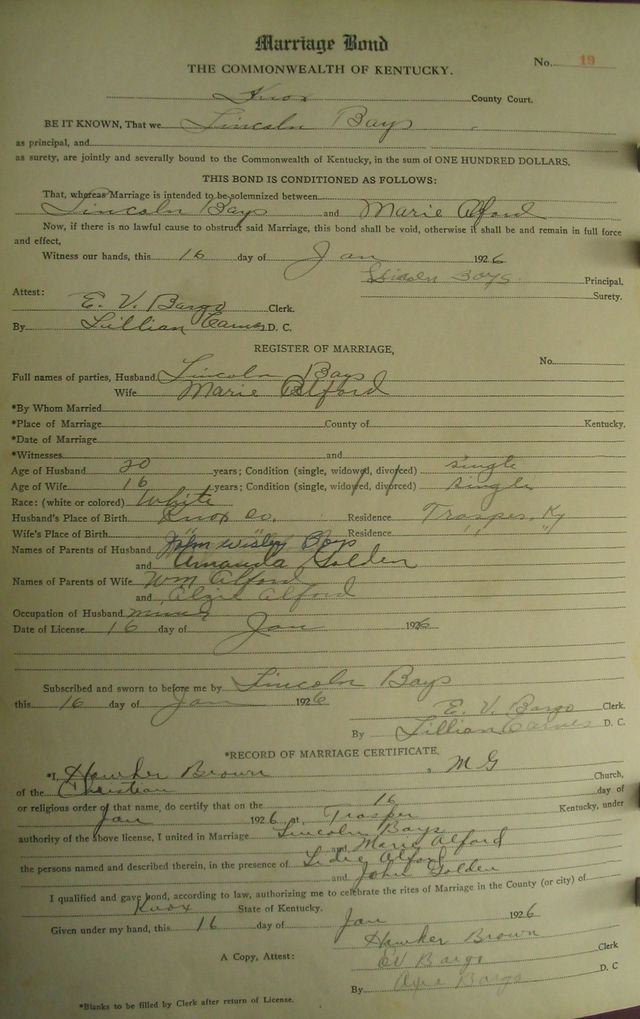 Marriage Bond
No. 19
THE COMMONWEALTH OF KENTUCKY.
Knox County Court.
BE IT KNOWN, That we Lincoln Bays
as principal, and
as surety, are jointly and severally bound to the Commonwealth of Kentucky, in the sum of ONE HUNDRED DOLLARS.
THIS BOND IS CONDITIONED AS FOLLOWS:
That, whereas Marriage is intended to be solemnized between
Lincoln Bays and Marie Alford
Now, if there is no lawful cause to obstruct said Marriage, this bond shall be void, otherwise it shall be and remain in full force
and effect,
Witness our hands, this 16 day of Jan 1926
Bays Principal.
Surety.
Attest:
E. V. Bargo Clerk.
By Lillian D. C.
REGISTER OF MARRIAGE,
No.
Full names of parties, Husband Lincoln Bays
Wife Marie Alford
*By Whom Married
*Place of Marriage County of Kentucky.
*Date of Marriage
*Witnesses and
Age of Husband 20 years; Condition (single, widowed, divorced) single
Age of Wife 16 years; Condition (single, widowed, divorced) single
Race: (white or colored) White
Husband's Place of Birth Knox Co. Residence Trosper, Ky
Wife's Place of Birth " " Residence " "
Names of Parents of Husband Bays
and Amanda Golden
Names of Parents of Wife Wm Alford
and Alford
Occupation of Husband
Date of License 16 day of Jan 1926
Subscribed and sworn to before me by Lincoln Bays
this 16 day of Jan 1926
E. V. Bargo Clerk.
By Lillian D. C.
*RECORD OF MARRIAGE CERTIFICATE.
*I, Hawker Brown, M G
of the Christian Church,
or religious order of that name, do certify that on the 16 day of
Jan 1926, at Trosper Kentucky, under
authority of the above license, I united in Marriage Lincoln Bays
and Marie Alford
the persons named and described therein, in the presence of Alford
and John Golden
I qualified and gave bond, according to law, authorizing me to celebrate the rites of Marriage in the County (or city) of
Knox State of Kentucky.
Given under my hand, this 16 day of Jan 1926
Hawker Brown
A Copy, Attest: EV Bargo Clerk
By Bargo D. C
*Blanks to be filled by Clerk after return of License.